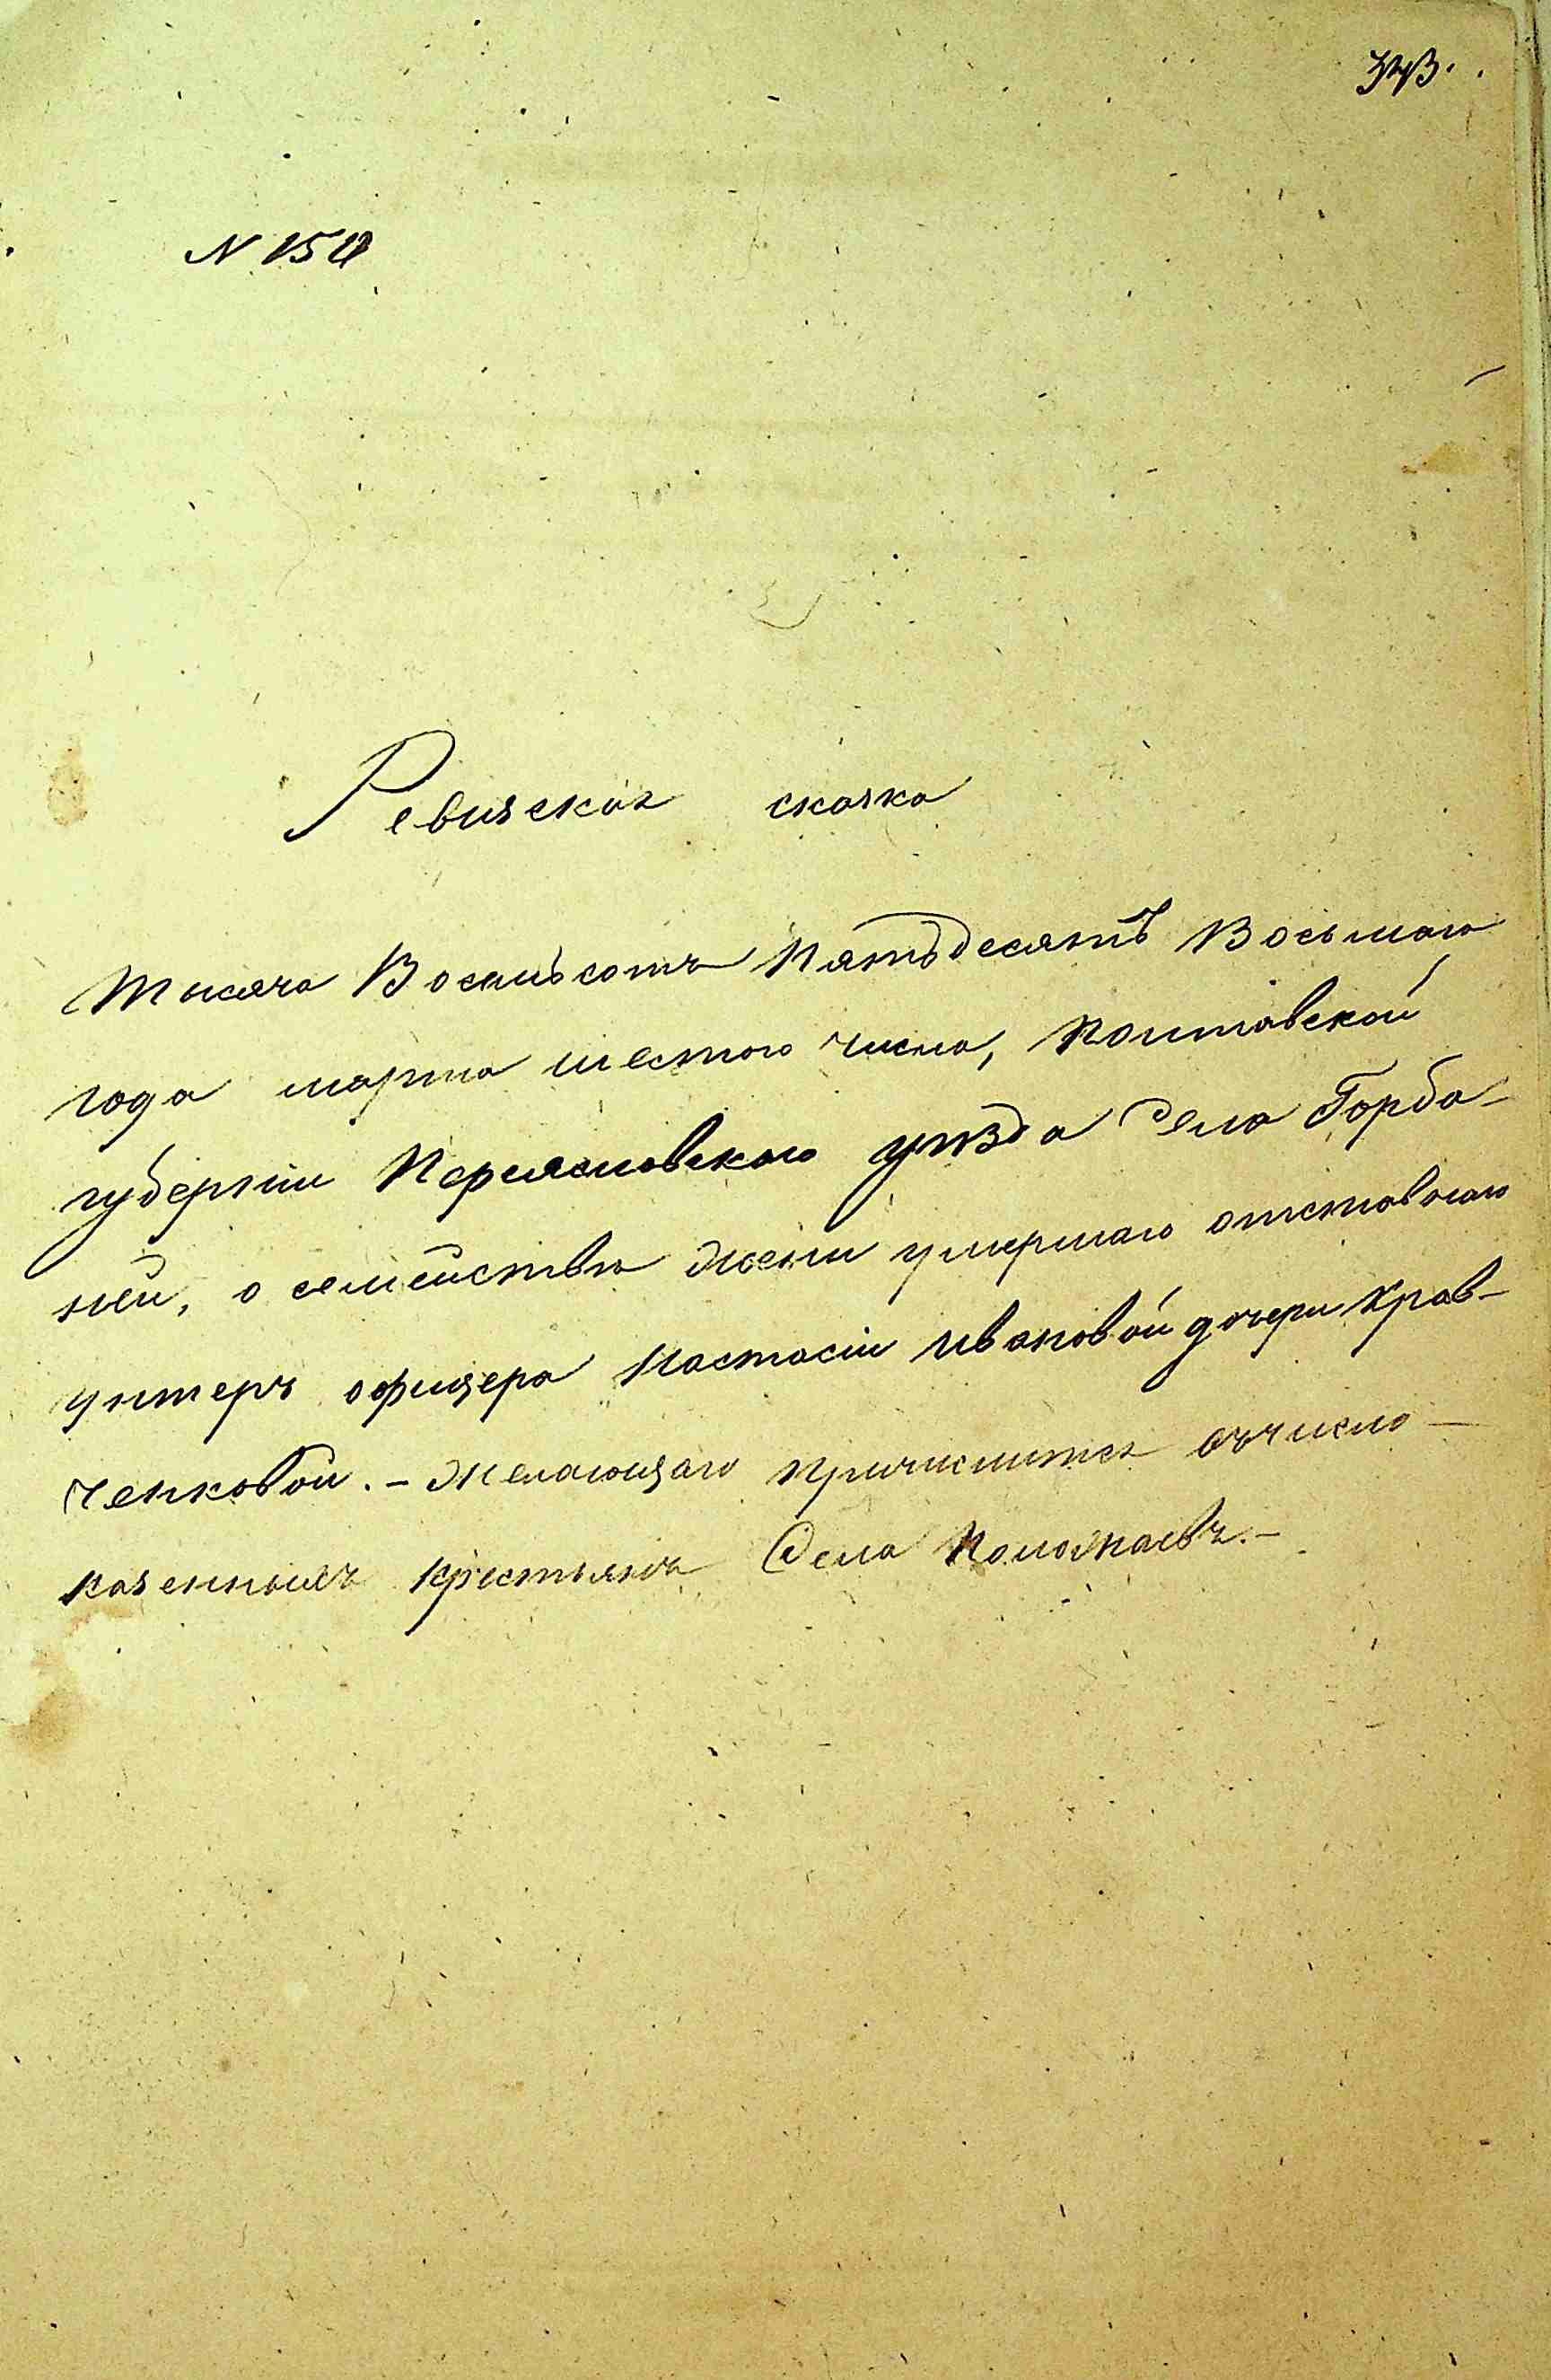 N 150
Ревизская сказка
Тысяча Восемьсотъ Пятьдесятъ Восьмаго
года марта шестого числа, Полтавской
губерніи Переясловского уѣзда Села Горба-
ней, о семействѣ жени умершаго отставнаго
унтеръ офицера Настасіи Ивановой дочери Крав-
ченковой. - Желающаго причислится въ число
казенныхъ крестьянъ Села